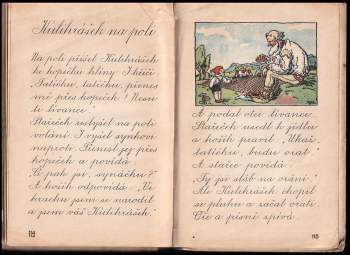 Kulihrášek na poli
Na poli přišel Kulihrášek
ke kopečku hlíny. I křičí:
„Tatíčku, tatíčku, přenes
mě přes kopeček! Nesu
ti lívance.“
Stařeček uslyšel na poli
volání. I vyšel synkovi
naproti. Přenesl jej přes
kopeček a povídá:
„Či pak jsi, synáčku?“
A hošík odpovídá: „Ve
hrachu jsem se narodil
a jsem váš Kulihrášek.“
114
A podal otci lívance.
Stařeček usedl k jídlu
a hošík pravil: „Ukaž,
tatíčku, budu orat.“
A stařec povídá:
„Ty jsi sláb na orání.“
Ale Kulihrášek chopil
se pluhu a začal orat.
Oře a písně zpívá.
115